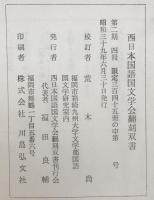 西日本国語国文学会翻刻双書
第二期 四冊 限定三百四十五部の中第 号
昭和三十九年六月三十日発行
校訂者 荒木 尚
福岡市箱崎九州大学文学部国語
国文学研究室内
発行者 西日本国語国文学会翻刻双書刊行会
代表者 福田良輔
福岡市舞鶴一丁目五番六号
印刷者 株式会社 川島弘文社